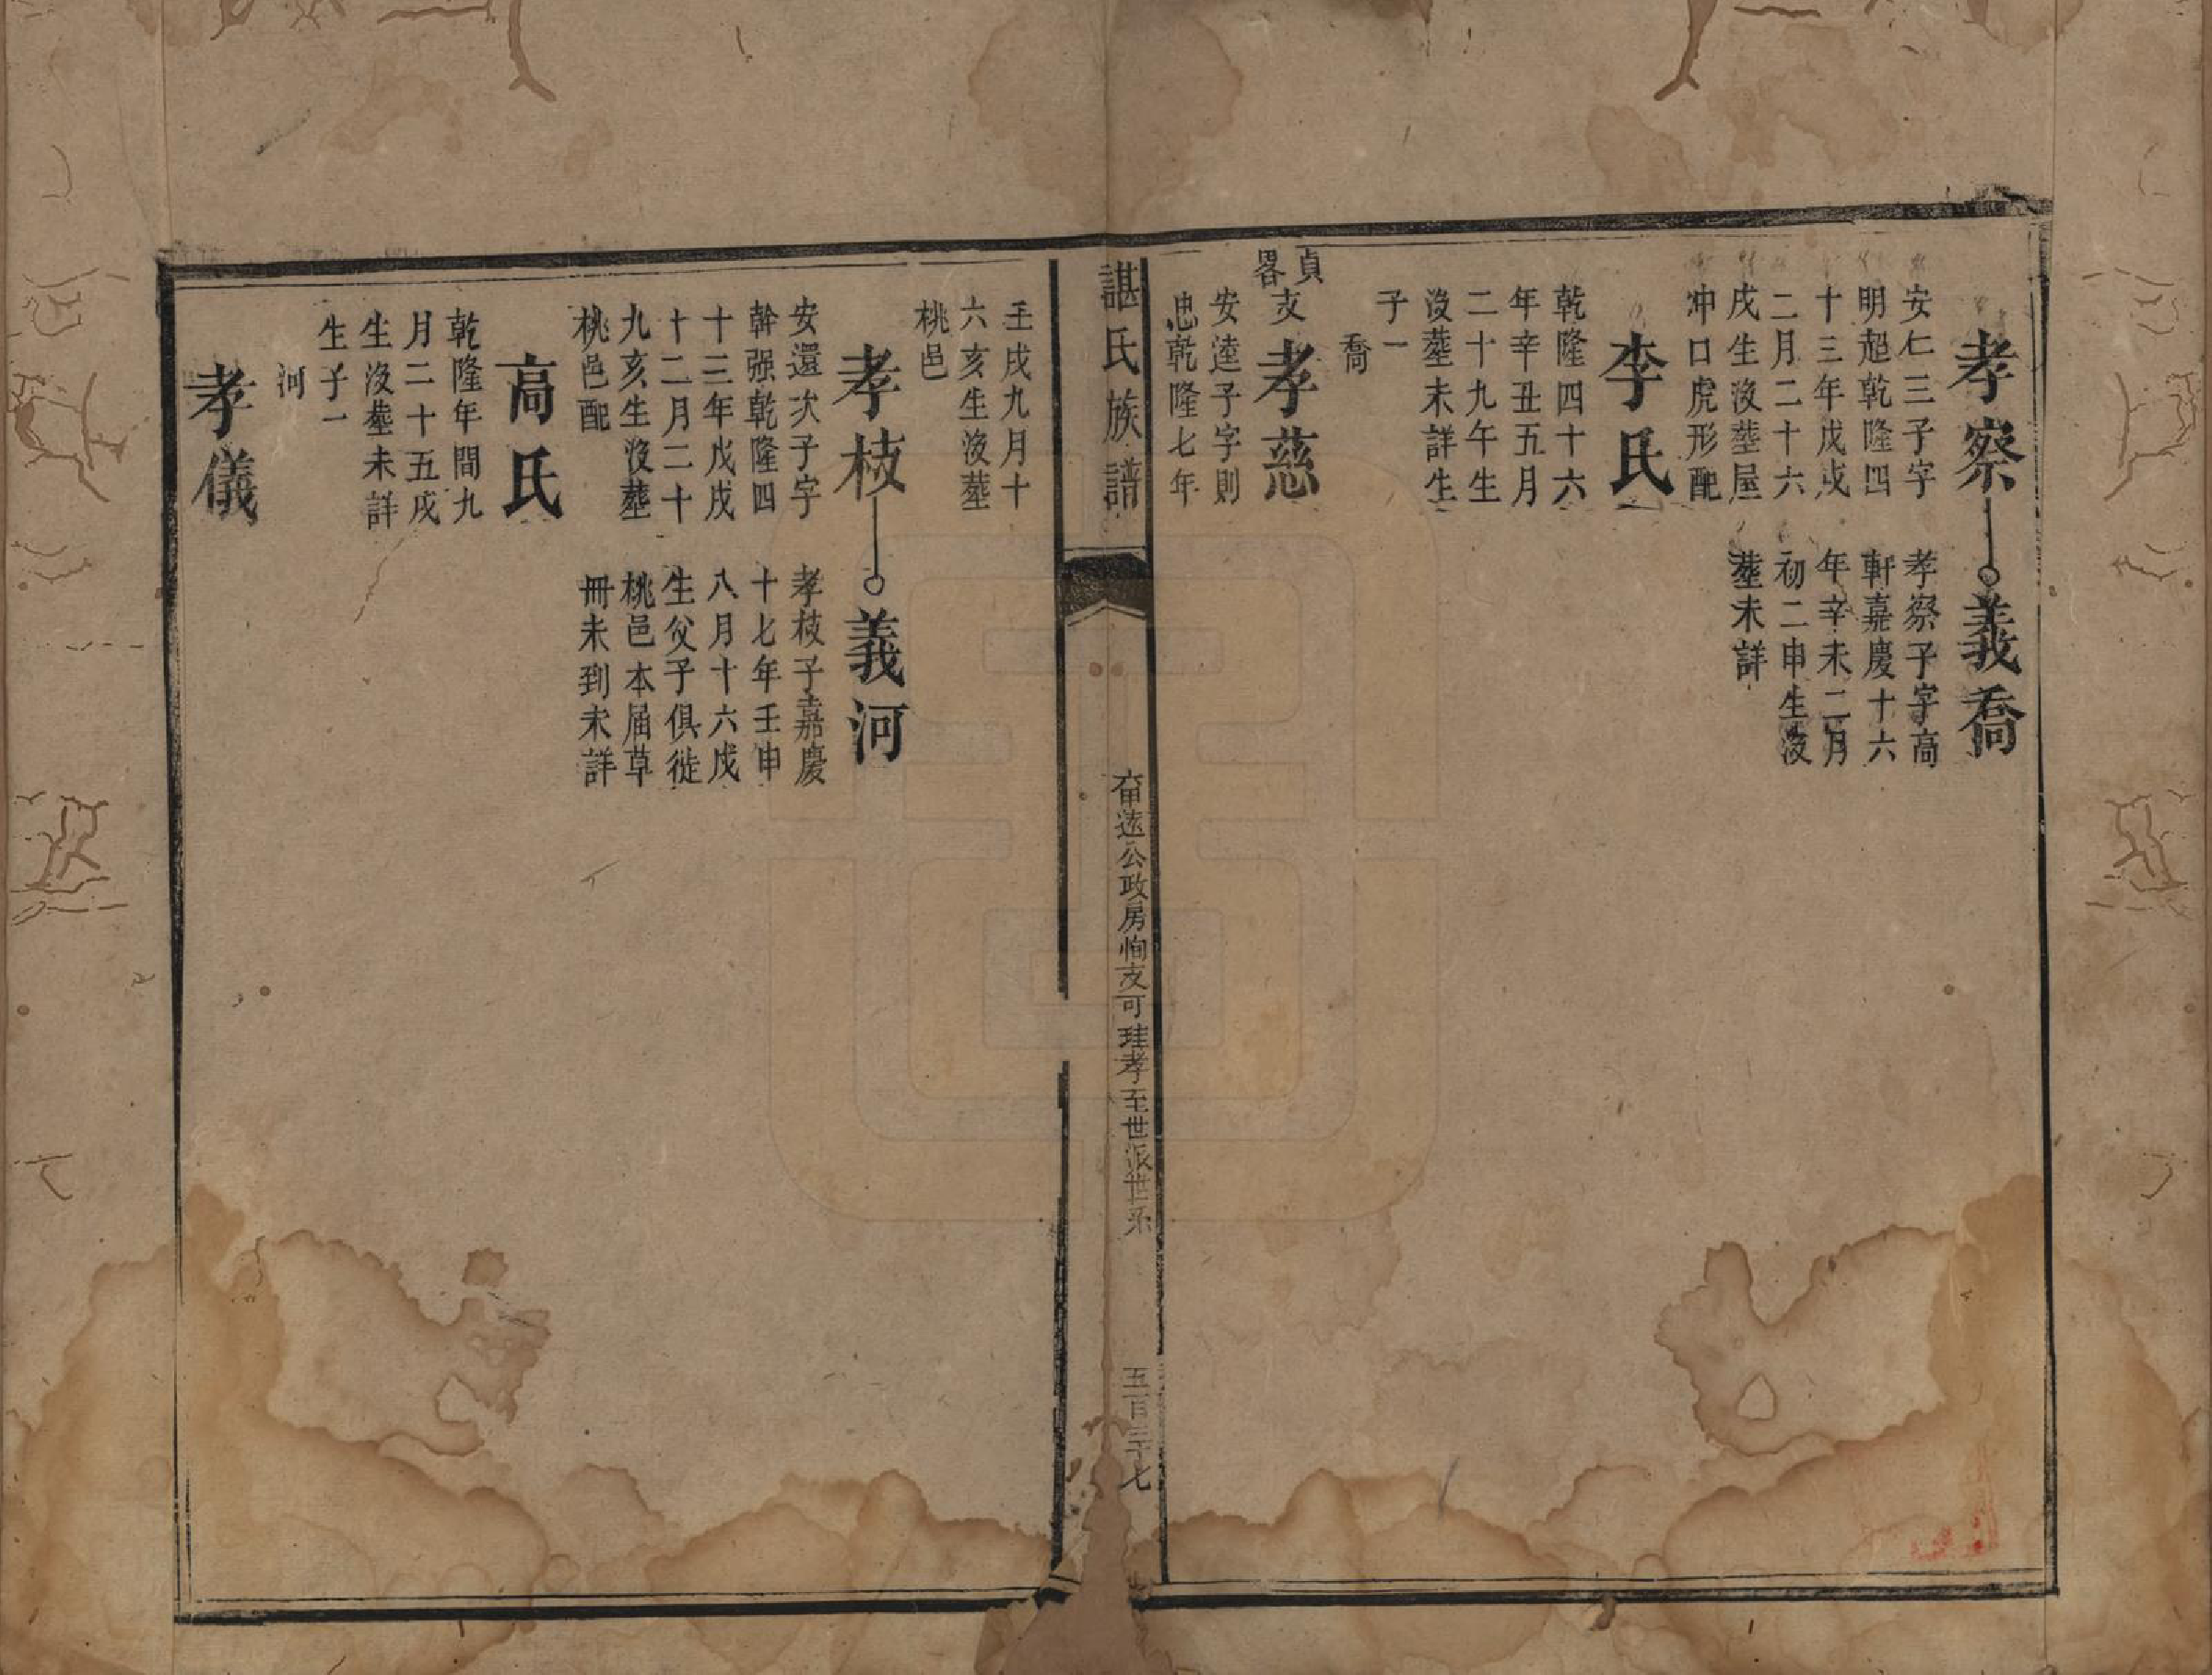 孝察
義喬
安仁三子字
明超乾隆四
十三年戊戌
二月二十六
戌生沒塟屋
冲口虎形配
孝察子字高
軒嘉慶十六
年辛未二月
初二申生沒
塟未詳
李氏
乾隆四十六
年辛丑五月
二十九午生
沒塟未詳生
子一
喬
貞畧支
孝慈
安逵子字則
忠乾隆七年
諶氏族譜
奋遠公政房恂支可珪孝至世派世系
五百三十七
壬戌九月十
六亥生沒塟
桃邑
孝枝
義河
安還次子字
幹强乾隆四
十三年戊戌
十二月二十
九亥生沒塟
桃邑配
孝枝子嘉慶
十七年壬申
八月十六戌
生父子俱徙
桃邑本届草
冊未到未詳
高氏
乾隆年間九
月二十五戌
生沒塟未詳
生子一
河
孝儀